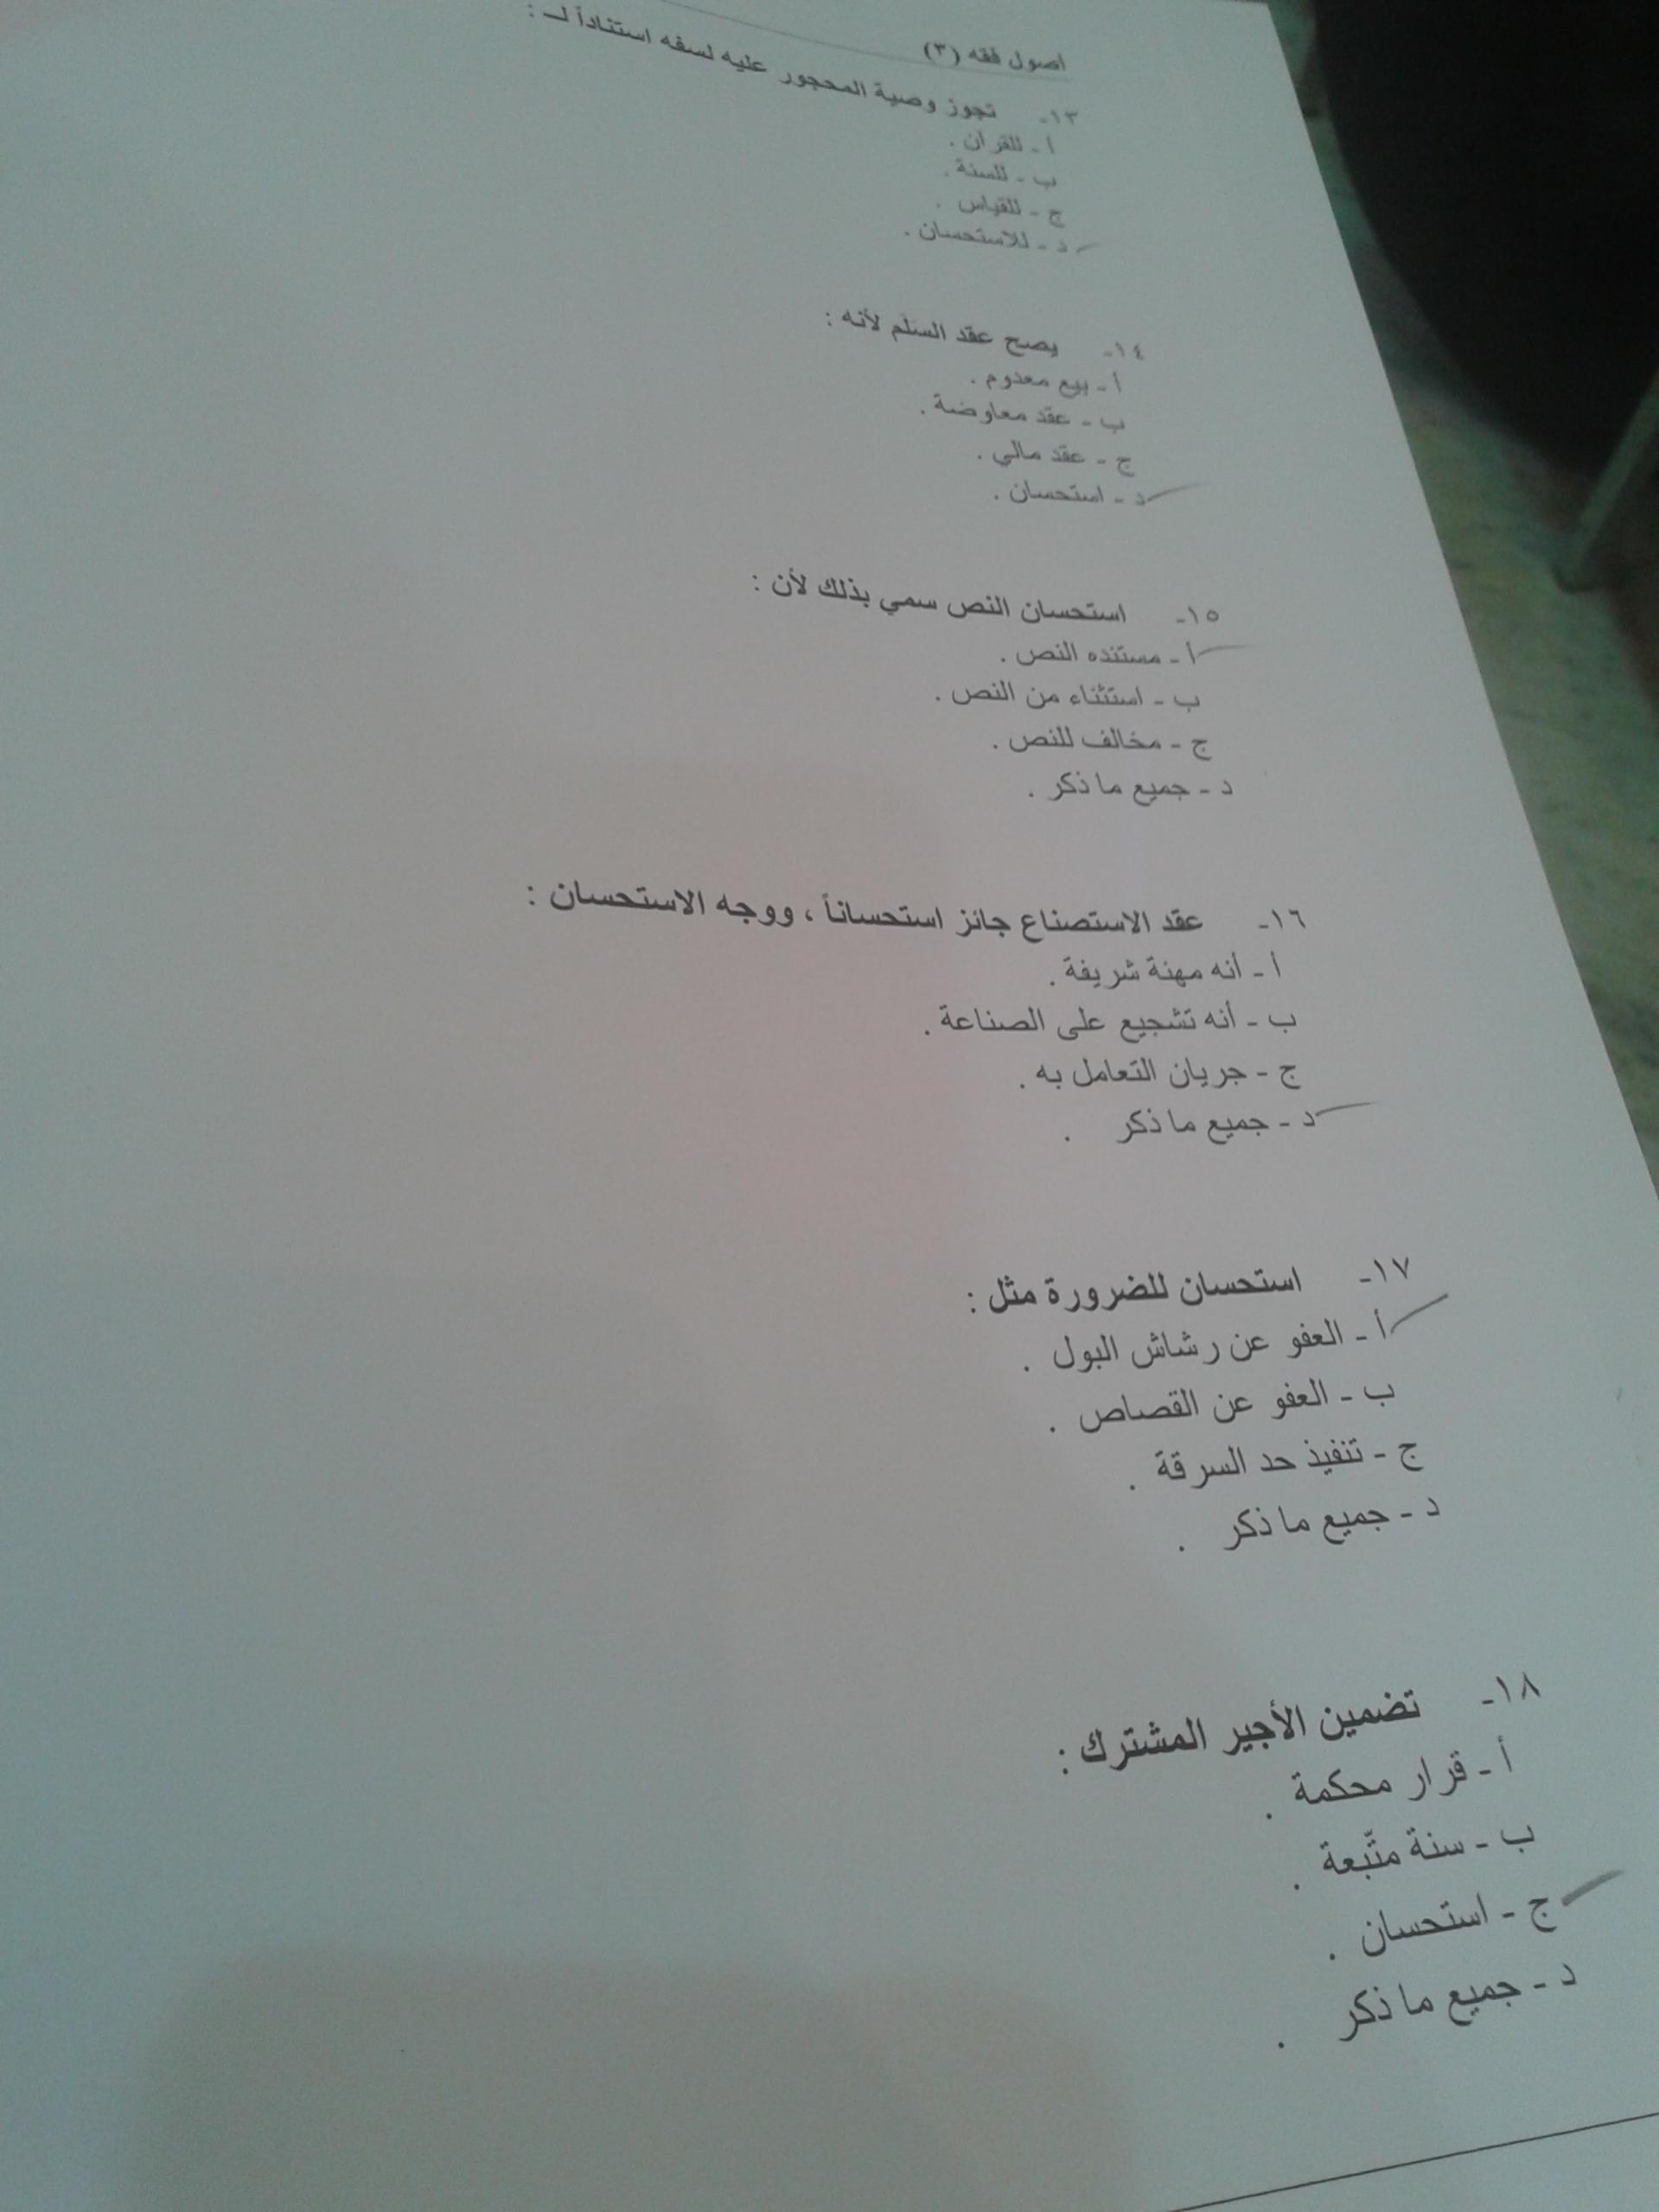 أصول فقه (٣)
١٣- تجوز وصية المحجور عليه لسفه استناداً لـ :
أ - للقرآن .
ب - للسنة .
ج - للقياس .
د - للاستحسان .
١٤- يصح عقد السَلَم لأنه :
أ - بيع معدوم .
ب - عقد معاوضة .
ج - عقد مالي .
د - استحسان .
١٥- استحسان النص سمي بذلك لأن :
أ - مستنده النص .
ب - استثناء من النص .
ج - مخالف للنص .
د - جميع ما ذكر .
١٦- عقد الاستصناع جائز استحساناً ، ووجه الاستحسان :
أ - أنه مهنة شريفة .
ب - أنه تشجيع على الصناعة .
ج - جريان التعامل به .
د - جميع ما ذكر .
١٧- استحسان للضرورة مثل :
أ - العفو عن رشاش البول .
ب - العفو عن القصاص .
ج - تنفيذ حد السرقة .
د - جميع ما ذكر .
١٨- تضمين الأجير المشترك :
أ - قرار محكمة .
ب - سنة متّبعة .
ج - استحسان .
د - جميع ما ذكر .